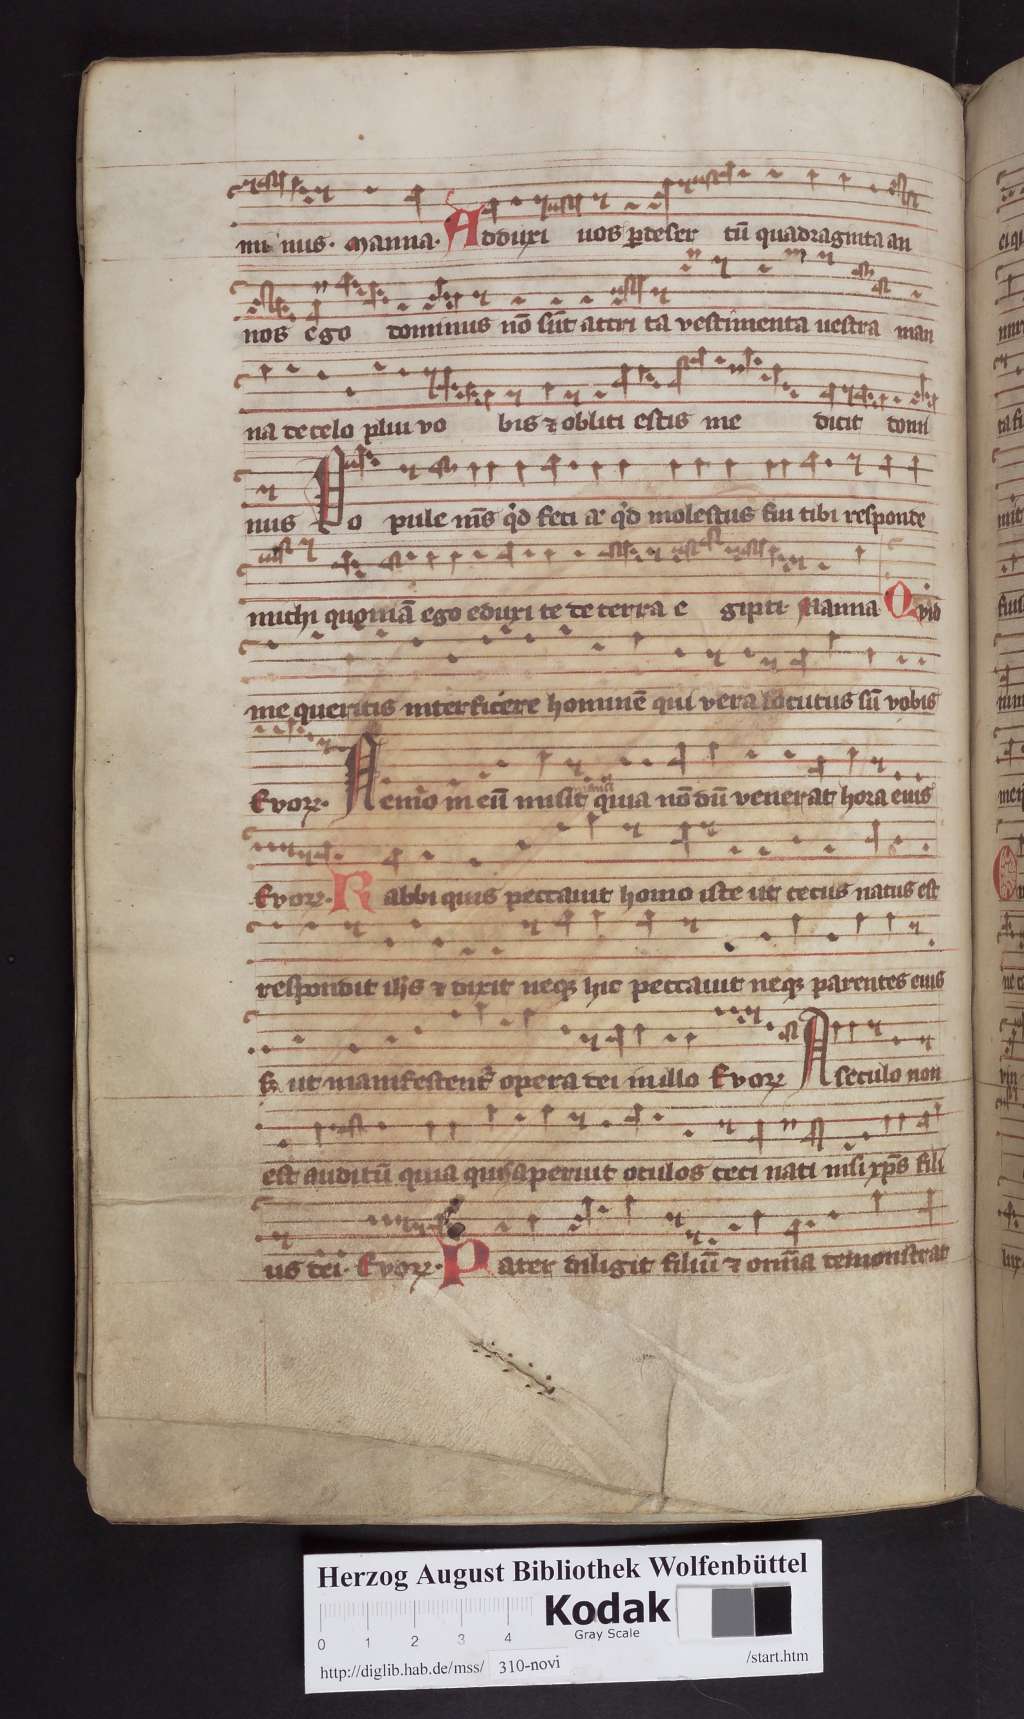 mi nus. Manna. Adduxi vos p̱ deser tū quadraginta an
nos ego dominus nō sūt attri ta vestimenta uestra man
na de celo plui vo bis ⁊ obliti estis me dicit domi
nus Po pule mīs qͥd feci aͭ qͥd molestus fui tibi responde
michi quoniā ego eduxi te de terra e gipti. Manna Qvid
me queritis interficere hominē qui vera locutus sū vobis
Evovꝝ. Nemo in eū misit quia nō dū venerat hora eius
Evovꝝ. Rabbi quis peccauit homo iste ut cecus natus est
respondit ihs ⁊ dixit neqꝫ hic peccauit neqꝫ parentes eius
sꝫ ut manifestentᷣ opera dei in illo Evovꝝ A seculo non
est auditū quia quis aperuit oculos ceci nati nisi xp̄s fili
us dei. Evovꝝ. Pater diligit filiū ⁊ omīa demonstrat
Herzog August Bibliothek Wolfenbüttel
Kodak
Gray Scale
0 1 2 3 4
http://diglib.hab.de/mss/ 310-novi /start.htm